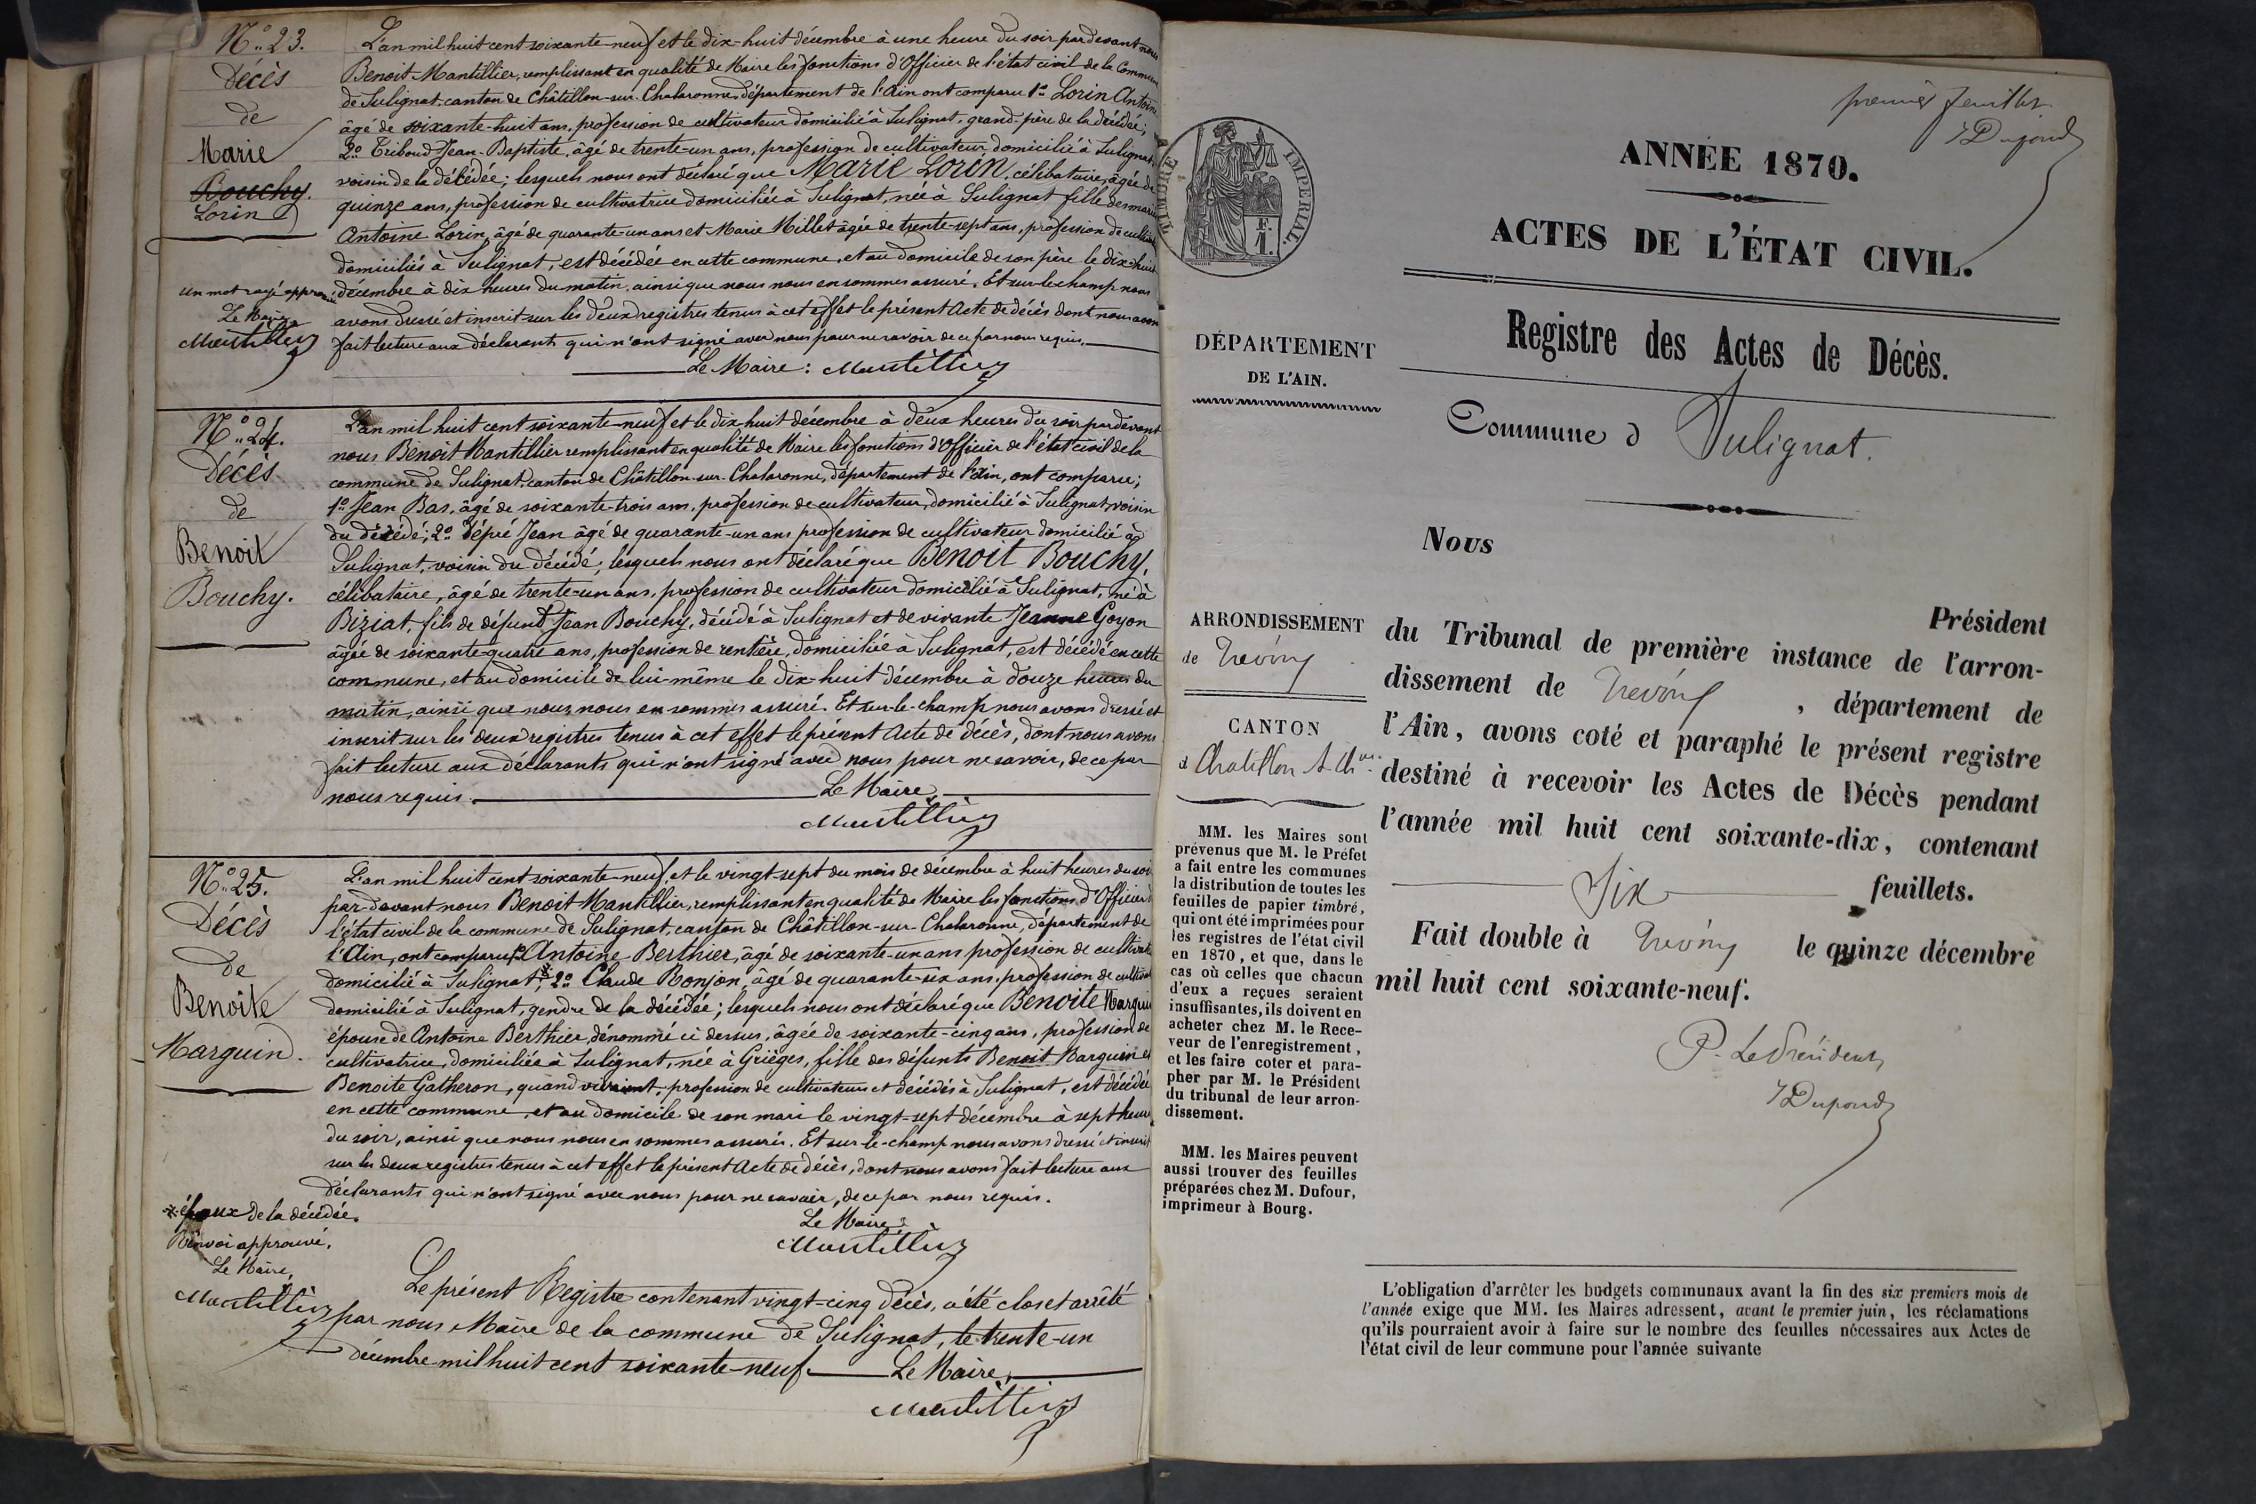 N.° 23.
Décès
de
Marie
Bouchy.
Lorin
un mot rayé approuvé
Le Maire
Mantillier
L'an mil huit cent soixante-neuf et le dix-huit décembre à une heure du soir par devant nous
Benoit Mantillier, remplissant en qualité de Maire les fonctions d'Officier de l'état civil de la Commune
de Sulignat, canton de Châtillon-sur-Chalaronne, département de l'Ain ont comparu 1° Lorin Antoine
âgé de soixante-huit ans, profession de cultivateur domicilié à Sulignat, grand-père de la décédée;
2° Triboud Jean-Baptiste, âgé de trente-un ans, profession de cultivateur, domicilié à Sulignat,
voisin de la décédée; lesquels nous ont déclaré que Marie Lorin, célibataire, âgée de
quinze ans, profession de cultivatrice domiciliée à Sulignat, née à Sulignat fille des mariés
Antoine Lorin, âgé de quarante-un ans et Marie Millet âgée de trente-sept ans, profession de cultiv
domiciliés à Sulignat, est décédée en cette commune, et au domicile de son père le dix-huit
décembre à dix heures du matin, ainsi que nous nous en sommes assuré. Et sur-le-champ nous
avons dressé et inscrit sur les deux registres tenus à cet effet le présent Acte de décès dont nous avons
fait lecture aux déclarants qui n'ont signé avec nous pour ne savoir de ce par nous requis.
Le Maire: Mantillier
N.° 24.
Décès
de
Benoit
Bouchy.
L'an mil huit cent soixante-neuf et le dix huit décembre à deux heures du soir par devant
nous Benoit Mantillier remplissant en qualité de Maire les fonctions d'Officier de l'état civil de la
commune de Sulignat, canton de Châtillon-sur-Chalaronne, département de l'Ain, ont comparu;
1° Jean Bas, âgé de soixante-trois ans, profession de cultivateur, domicilié à Sulignat, voisin
du décédé; 2° Jean âgé de quarante-un ans profession de cultivateur domicilié à
Sulignat, voisin du décédé; lesquels nous ont déclaré que Benoit Bouchy,
célibataire, âgé de trente-un ans, profession de cultivateur domicilié à Sulignat, né à
Biziat, fils de défunt Jean Bouchy, décédé à Sulignat et de vivante Jeanne Goyon
âgée de soixante-quatre ans, profession de rentière, domiciliée à Sulignat, est décédé en cette
commune, et au domicile de lui-même le dix-huit décembre à douze heures du
matin, ainsi que nous nous en sommes assuré. Et sur-le-champ nous avons dressé et
inscrit sur les deux registres tenus à cet effet le présent Acte de décès, dont nous avons
fait lecture aux déclarants qui n'ont signé avec nous pour ne savoir, de ce par
nous requis. Le Maire
Mantillier
N.° 25.
Décès
de
Benoite
Marguin.
L'an mil huit cent soixante-neuf, et le vingt-sept du mois de décembre à huit heures du soir
par-devant nous Benoit Mantillier, remplissant en qualité de Maire les fonctions d'Officier
l'état civil de la commune de Sulignat, canton de Châtillon-sur-Chalaronne, département de
l'Ain, ont comparu 1° Antoine Berthier, âgé de soixante-un ans profession de cultivat
domicilié à Sulignat *; 2° Claude Bonjon, âgé de quarante-six ans, profession de cultivat
domicilié à Sulignat, gendre de la décédée; lesquels nous ont déclaré que Benoite Marguin
épouse de Antoine Berthier, dénommé ci dessus, âgée de soixante-cinq ans, profession de
cultivatrice, domiciliée à Sulignat, née à Grièges, fille des défunts Benoit Marguin et
Benoite Gatheron, quand vivaient, profession de cultivateurs et décédés à Sulignat, est décédée
en cette commune, et au domicile de son mari le vingt-sept décembre à sept heures
du soir, ainsi que nous nous en sommes assuré. Et sur-le-champ nous avons dressé et inscrit
sur les deux registres tenus à cet effet le présent Acte de décès, dont nous avons fait lecture aux
déclarants qui n'ont signé avec nous pour ne savoir, de ce par nous requis.
Le Maire:
Mantillier
* époux de la décédée.
Renvoi approuvé.
Le Maire,
Mantillier
Le présent Registre contenant vingt-cinq décès, a été clos et arrêté
par nous Maire de la commune de Sulignat, le trente-un
décembre mil huit cent soixante-neuf. Le Maire,
Mantillier
premier feuillet.
Dupond
TIMBRE IMPERIAL.
F.
1.
ANNÉE 1870.
ACTES DE L'ÉTAT CIVIL.
Registre des Actes de Décès.
Commune d Sulignat.
DÉPARTEMENT
DE L'AIN.
ARRONDISSEMENT
de Trévoux
CANTON
d Chatillon s. Ch.ne
MM. les Maires sont
prévenus que M. le Préfet
a fait entre les communes
la distribution de toutes les
feuilles de papier timbré,
qui ont été imprimées pour
les registres de l'état civil
en 1870, et que, dans le
cas où celles que chacun
d'eux a reçues seraient
insuffisantes, ils doivent en
acheter chez M. le Rece-
veur de l'enregistrement,
et les faire coter et para-
pher par M. le Président
du tribunal de leur arron-
dissement.
MM. les Maires peuvent
aussi trouver des feuilles
préparées chez M. Dufour,
imprimeur à Bourg.
Nous
Président
du Tribunal de première instance de l'arron-
dissement de Trévoux, département de
l'Ain, avons coté et paraphé le présent registre
destiné à recevoir les Actes de Décès pendant
l'année mil huit cent soixante-dix, contenant
Six feuillets.
Fait double à Trévoux le quinze décembre
mil huit cent soixante-neuf.
P. Le Président
Dupond
L'obligation d'arrêter les budgets communaux avant la fin des six premiers mois de
l'année exige que MM. les Maires adressent, avant le premier juin, les réclamations
qu'ils pourraient avoir à faire sur le nombre des feuilles nécessaires aux Actes de
l'état civil de leur commune pour l'année suivante